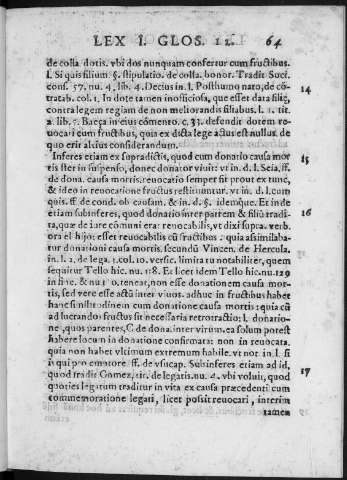 LEX I. GLOS. 12. 64
de colla dotis. vbi dos nunquam confertur cum fructibus.
l. Si quis filium. §. stipulatio. de colla. bonor. Tradit Soci.
conf. 57. nu. 4. lib. 4. Decius in. l. Posthumo nato, de cō-
tratab. col. 1. In dote tamen inofficiosa, que esset data filię,
contra legem regiam de non meliorandis filiabus. l. 1. tit.
2. lib. 5. Baeça in eius cōmento. c. 33. defendit dotem re-
uocari cum fructibus, quia ex dicta lege actus est nullus. de
quo erit alcius considerandum.
Inferes etiam ex supradictis, quod cum donatio causa mor
tis ster in suspenso, donec donator viuit: vt in. d. l. Seia, ff.
de dona. causa mortis. reuocatio semper sit prout ex tunc,
& ideo in reuocatione fructus restituuntur. vt in. d. l. cum
quis. ff. de cond. ob causam. & in. d. §. idemque. Et in de
etiam subinferes, quod donatio inter patrem & filiū tradi-
ta, quæ de iure cōmuni era: reuocabilis, vt dixi supra. verb.
ora el hijo: esset reuocabilis cū fructibus. quia assimilaba-
tur donationi causa mortis. secundū Vincen. de Hercula.
in l. 2. de lega. 1. col. 10. versic. limita tu notabiliter, quem
sequitur Tello hic. nu. 118. Et licet idem Tello hic. nu. 129
in fine. & nu. 130. teneat, non esse donationem causa mor-
tis, sed vere esse actū inter viuos. adhuc in fructibus habet
hanc similitudinem cum donatione causa mortis: quia cū
ad lucrandos fructus sit necessaria retrotractio: l. donatio-
ne, quos parentes, C. de dona. inter virum. ea solum potest
habere locum in donatione confirmata: non in reuocata.
quia non habet vltimum extremum habile. vt nor. in l. si
is qui pro emptore. ff. de vsucap. Subinferes etiam ad id,
quod tradit Gomez, tit. de legatis. nu. 4. vbi voluit, quod
quoties legatum traditur in vita ex causa præcedenti cum
commemoratione legati, licet possit reuocari, interim
tamen
14
15
16
17